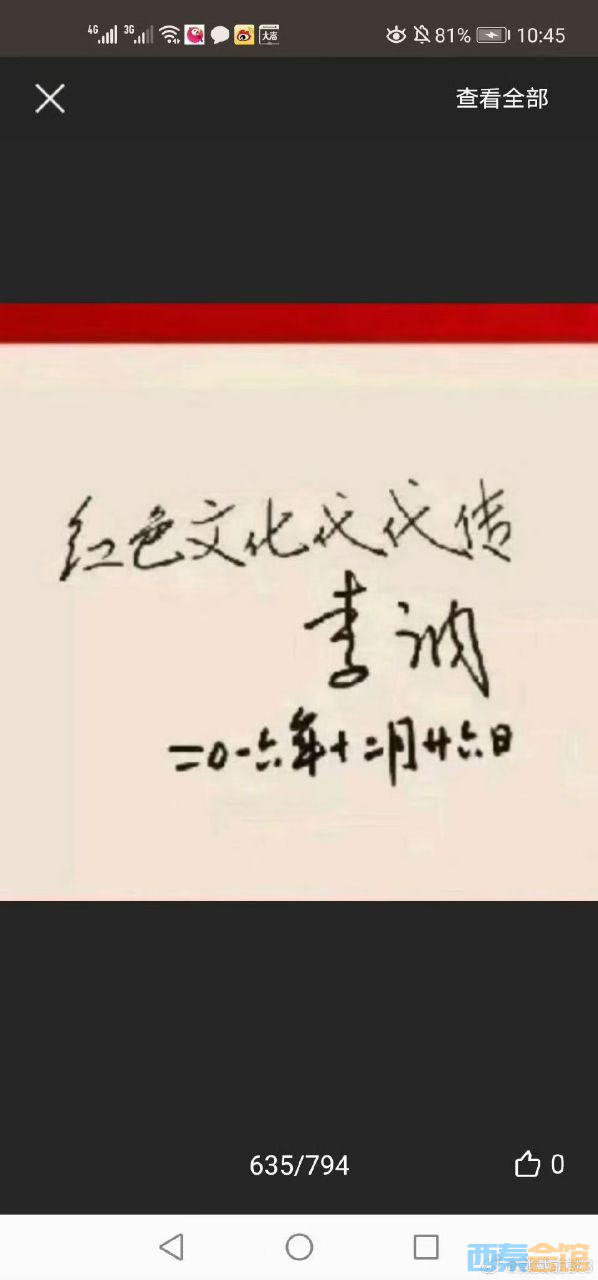 4G 3G 大麦 81% 10:45
查看全部
红色文化代代传
李讷
二0一六年十二月廿六日
635/794 0
西秦会馆